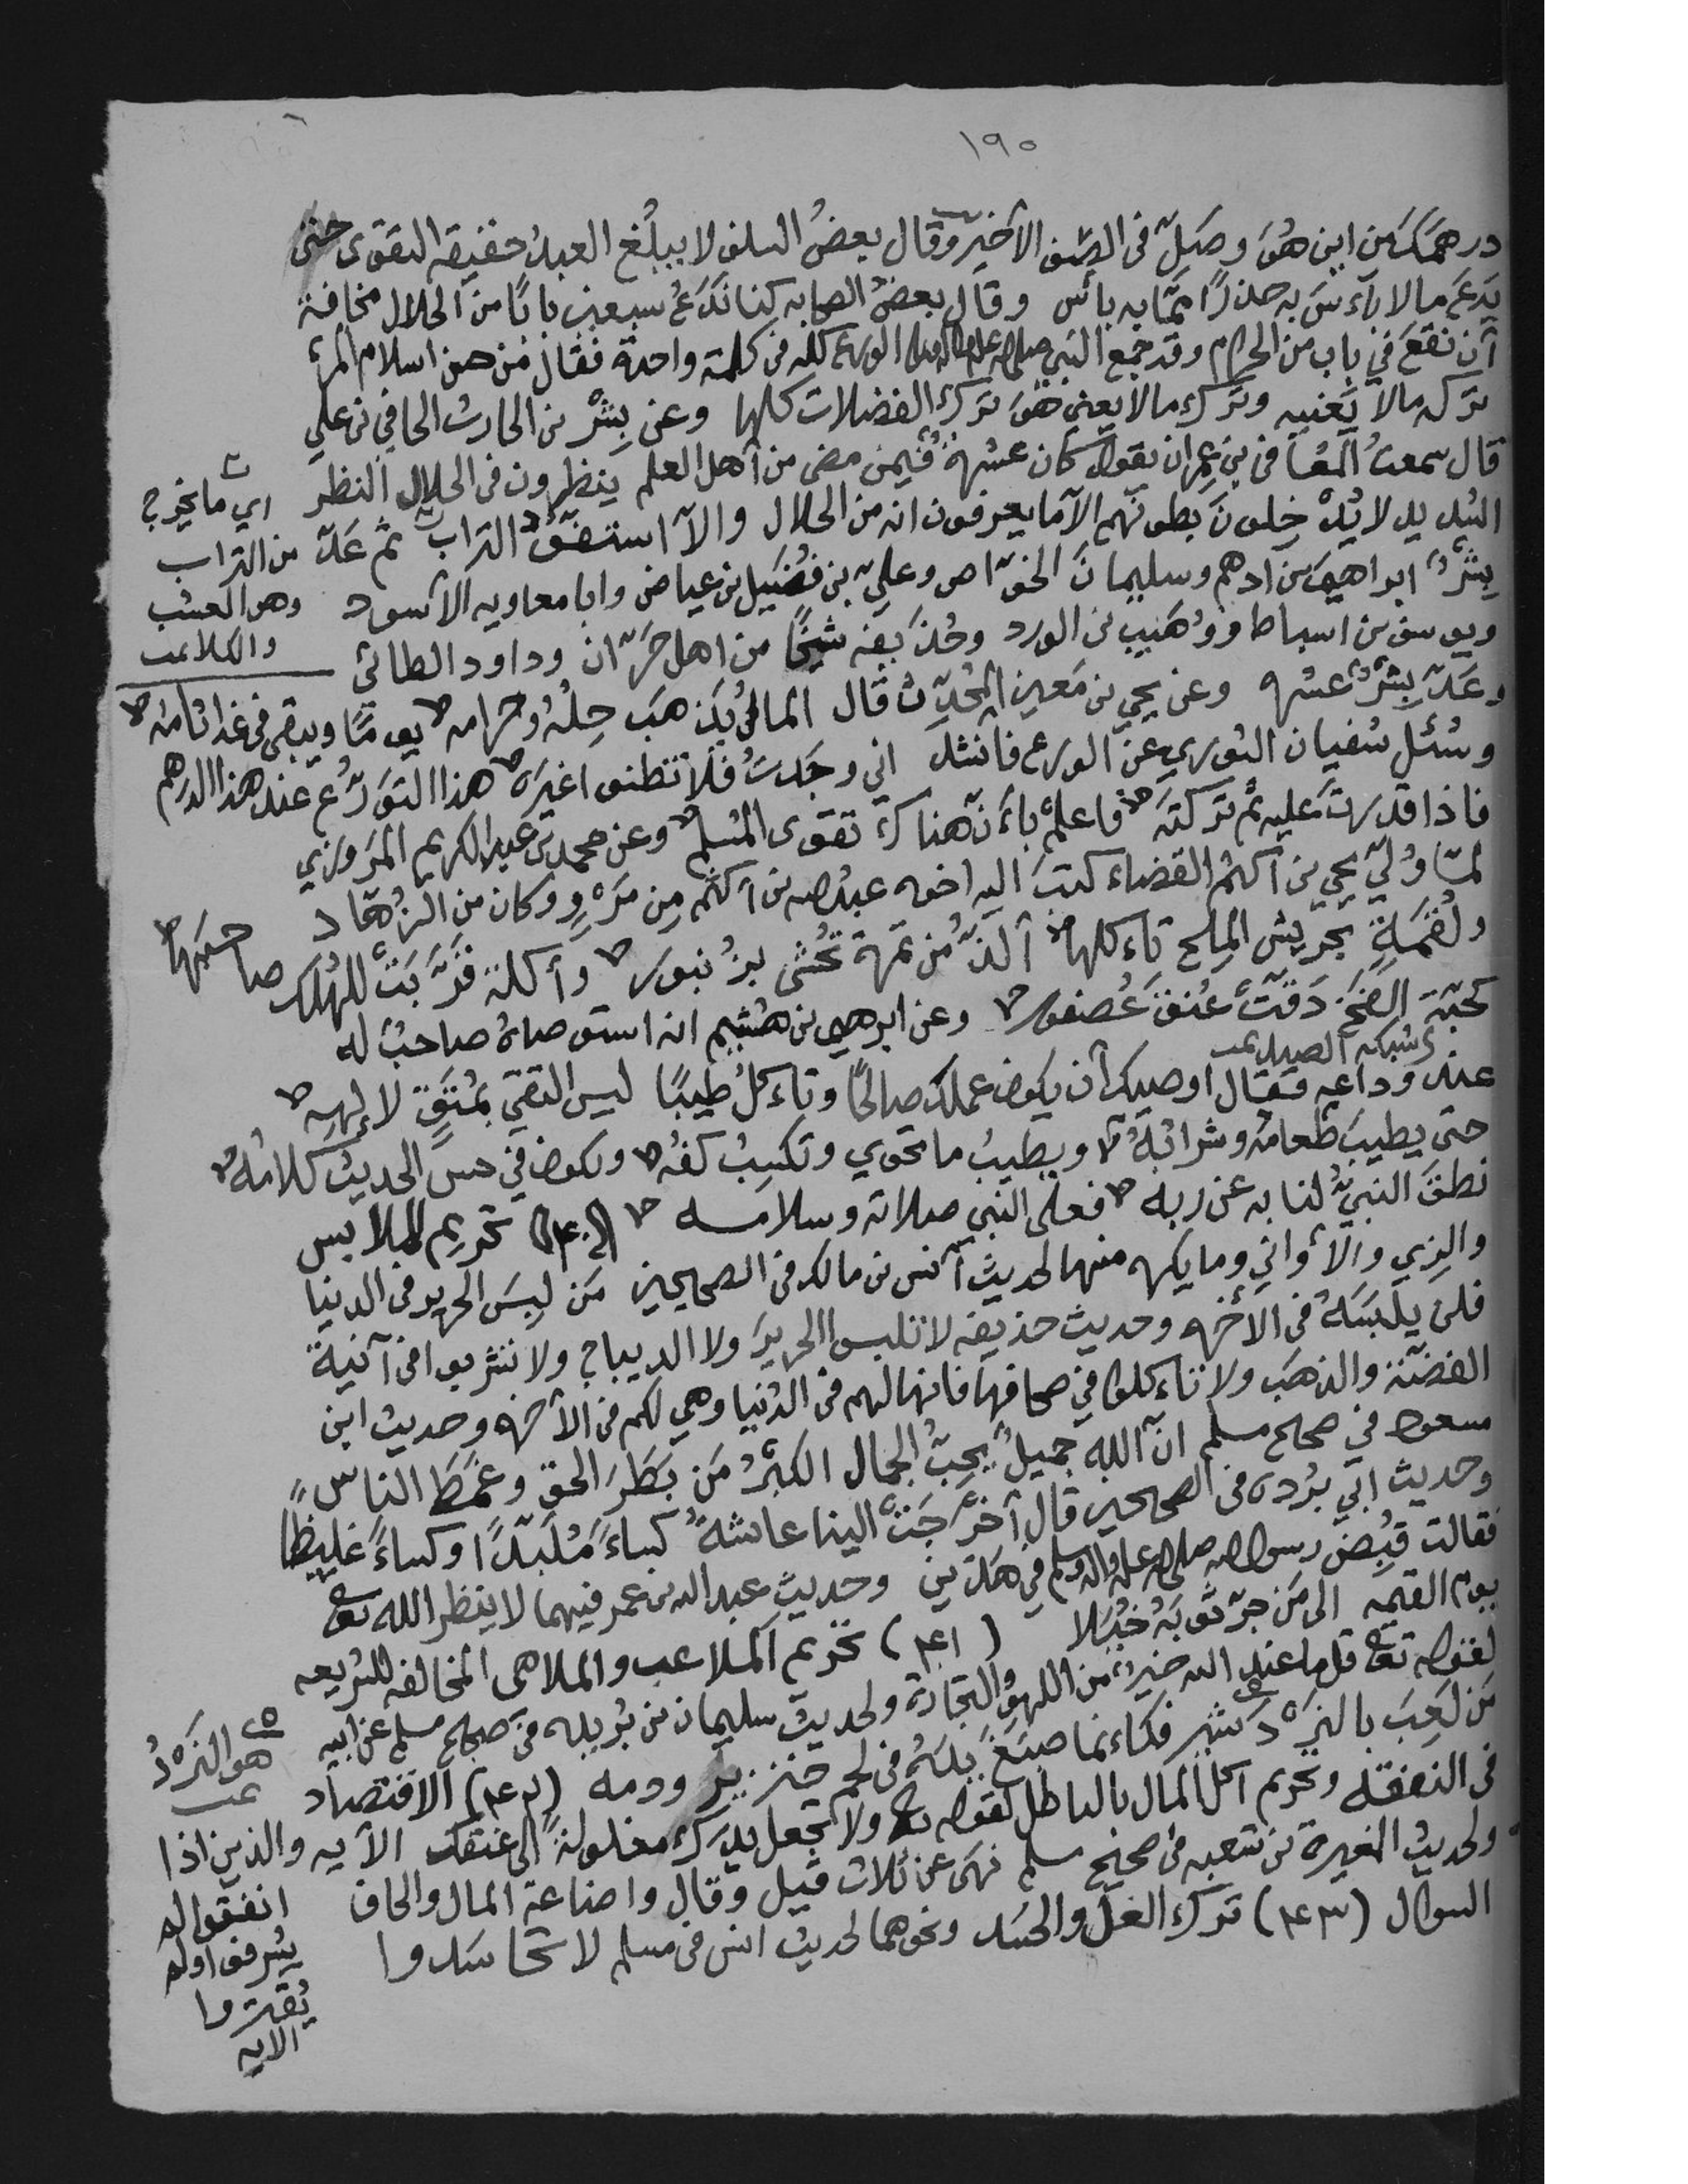 ١٩٠
درهمك من اين هو وصل في الصف الأخير وقال بعض السلف لا يبلغ العبد حقيقة التقوى حتى
يدع ما لا بأس به حذرًا مما به بأس وقال بعض الصحابه كنا ندع سبعين بابًا من الحلال مخافة
أن نقع في باب من الحرام وقد جمع النبي صلى الله عليه واله وسلم الورع كله في كلمة واحدة فقال من حسن اسلام المرء
تركه مالا يعنيه وترك مالا يعني هو ترك الفضلات كلها وعن بشر بن الحارث الحافي بن علي
قال سمعت المعافى بن عمران يقول كان عشرة فيمن مضى من أهل العلم ينظرون في الحلال النظر
الشديد لا يدخلون بطونهم الا ما يعرفون انه من الحلال والا استفوا التراب ثم عد
بشر ابراهيم بن ادهم وسليمان الخواص وعلي بن فضيل بن عياض وابا معاويه الأسود
ويوسف بن اسباط ووهيب بن الورد وحذيفه شيخًا من اهل حران وداود الطائي
وعد بشر عشره وعن يحيى بن معين المحدث قال المال يذهب حله وحرامه يومًا ويبقى في غد اثامه
وسئل سفيان الثوري عن الورع فانشد اني وجدت فلا تظنوا غيره هذا التورع عند هذا الدرهم
فاذا قدرت عليه ثم تركته فاعلم بأن هناك تقوى المسلم وعن محمد بن عبد الكريم المروزي
لما ولي يحيى بن أكثم القضاء كتب اليه اخوه عبدالله بن أكثم من مرو وكان من الزهاد
ولقمة بجريش الملح تأكلها ألذ من تمرة تحشى بزنبور وأكلة قربت للهلك صاحبها
كحبة الفخ دقت عنق عصفور وعن ابرهيم بن هشيم انه استوصاه صاحب له
شبكه الصيد تمت
عند وداعه فقال اوصيك أن يكون عملك صالحًا وتأكل طيبًا ليس التقي بمتق لالهه
حتى يطيب طعامه وشرابه ويطيب ما تحوي وتكسب كفه ويكون في حسن الحديث كلامه
نطق النبي لنا به عن ربه فعلى النبي صلاته وسلامه (٤٠) تحريم الملابس
والزي والأواني وما يكره منها لحديث أنس بن مالك في الصحيحين من لبس الحرير في الدنيا
فلن يلبسه في الأخره وحديث حذيفه لا تلبسوا الحرير ولا الديباج ولا تشربوا في آنية
الفضة والذهب ولا تأكلوا في صحافها فانها لهم في الدنيا وهي لكم في الأخره وحديث ابن
مسعود في صحيح مسلم ان الله جميل يحب الجمال الكبر من بطر الحق وغمط الناس
وحديث ابي برده في الصحيحين قال أخرجت الينا عائشه كساءً ملبدًا وكساءً غليظًا
فقالت قبض رسول الله صلى الله عليه واله وسلم في هذين وحديث عبدالله بن عمر فيهما لا ينظر الله تعالى
يوم القيمه الى من جر ثوبه خيلا (٤١) تحريم الملاعب والملاهي المخالفه للشريعه
لقوله تعالى قل ما عند الله خير من اللهو والتجارة ولحديث سليمان بن بريده في صحيح مسلم عن ابيه
من لعب بالنرد شير فكأنما صبغ يده في لحم خنزير ودمه (٤٢) الاقتصاد
في النفقه وتحريم اكل المال بالباطل لقوله تعالى ولا تجعل يدك مغلولة الى عنقك الآيه والذين اذا
ولحديث المغيرة بن شعبه في صحيح مسلم نهى عن ثلاث قيل وقال واضاعة المال والحاف
السوال (٤٣) ترك الغل والحسد ونحوهما لحديث انس في مسلم لا تحاسدوا
اي ما يخرج
من التراب
وهو العشب
والكلا تمت
هو النرد
تمت
انفقوا لم
يسرفوا ولم
يقتروا
الايه